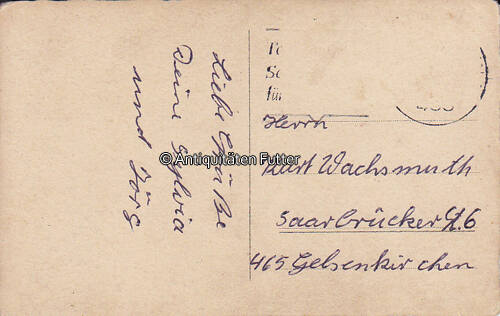 Liebe Grüße
Deine Sylvia
und Jörg
für
Herrn
Kurt Wachsmuth
Saarbrücker St. 6
465 Gelsenkirchen
© Antiquitäten Futter